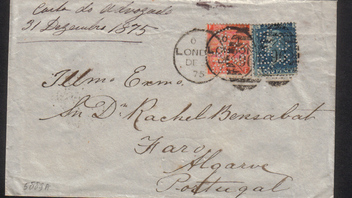 Carta do Advogado
31 Dezembro 1875
6
LONDON
DE
75
Illmo. Exmo.
Sn Dn Rachel Bensabat
Faro
Algarve
Portugal